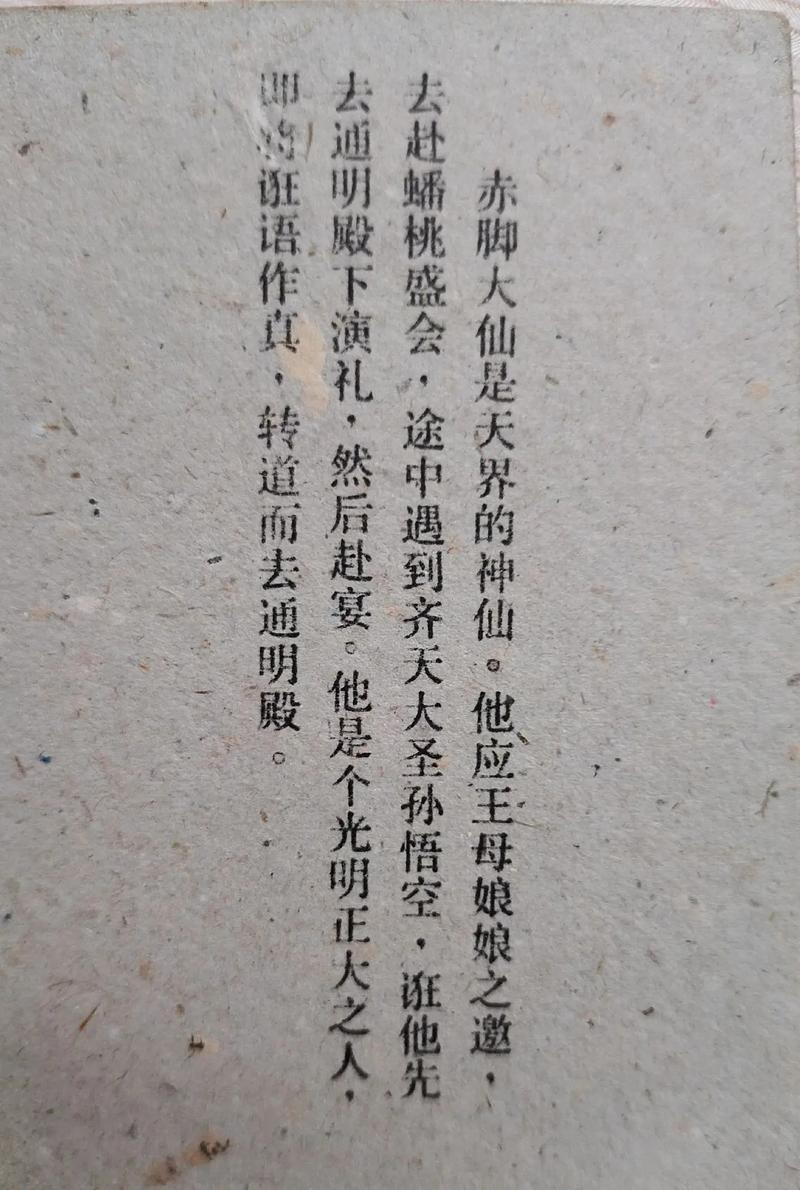 赤脚大仙是天界的神仙。他应王母娘娘之邀，
去赴蟠桃盛会，途中遇到齐天大圣孙悟空，诳他先
去通明殿下演礼，然后赴宴。他是个光明正大之人，
即将诳语作真，转道而去通明殿。